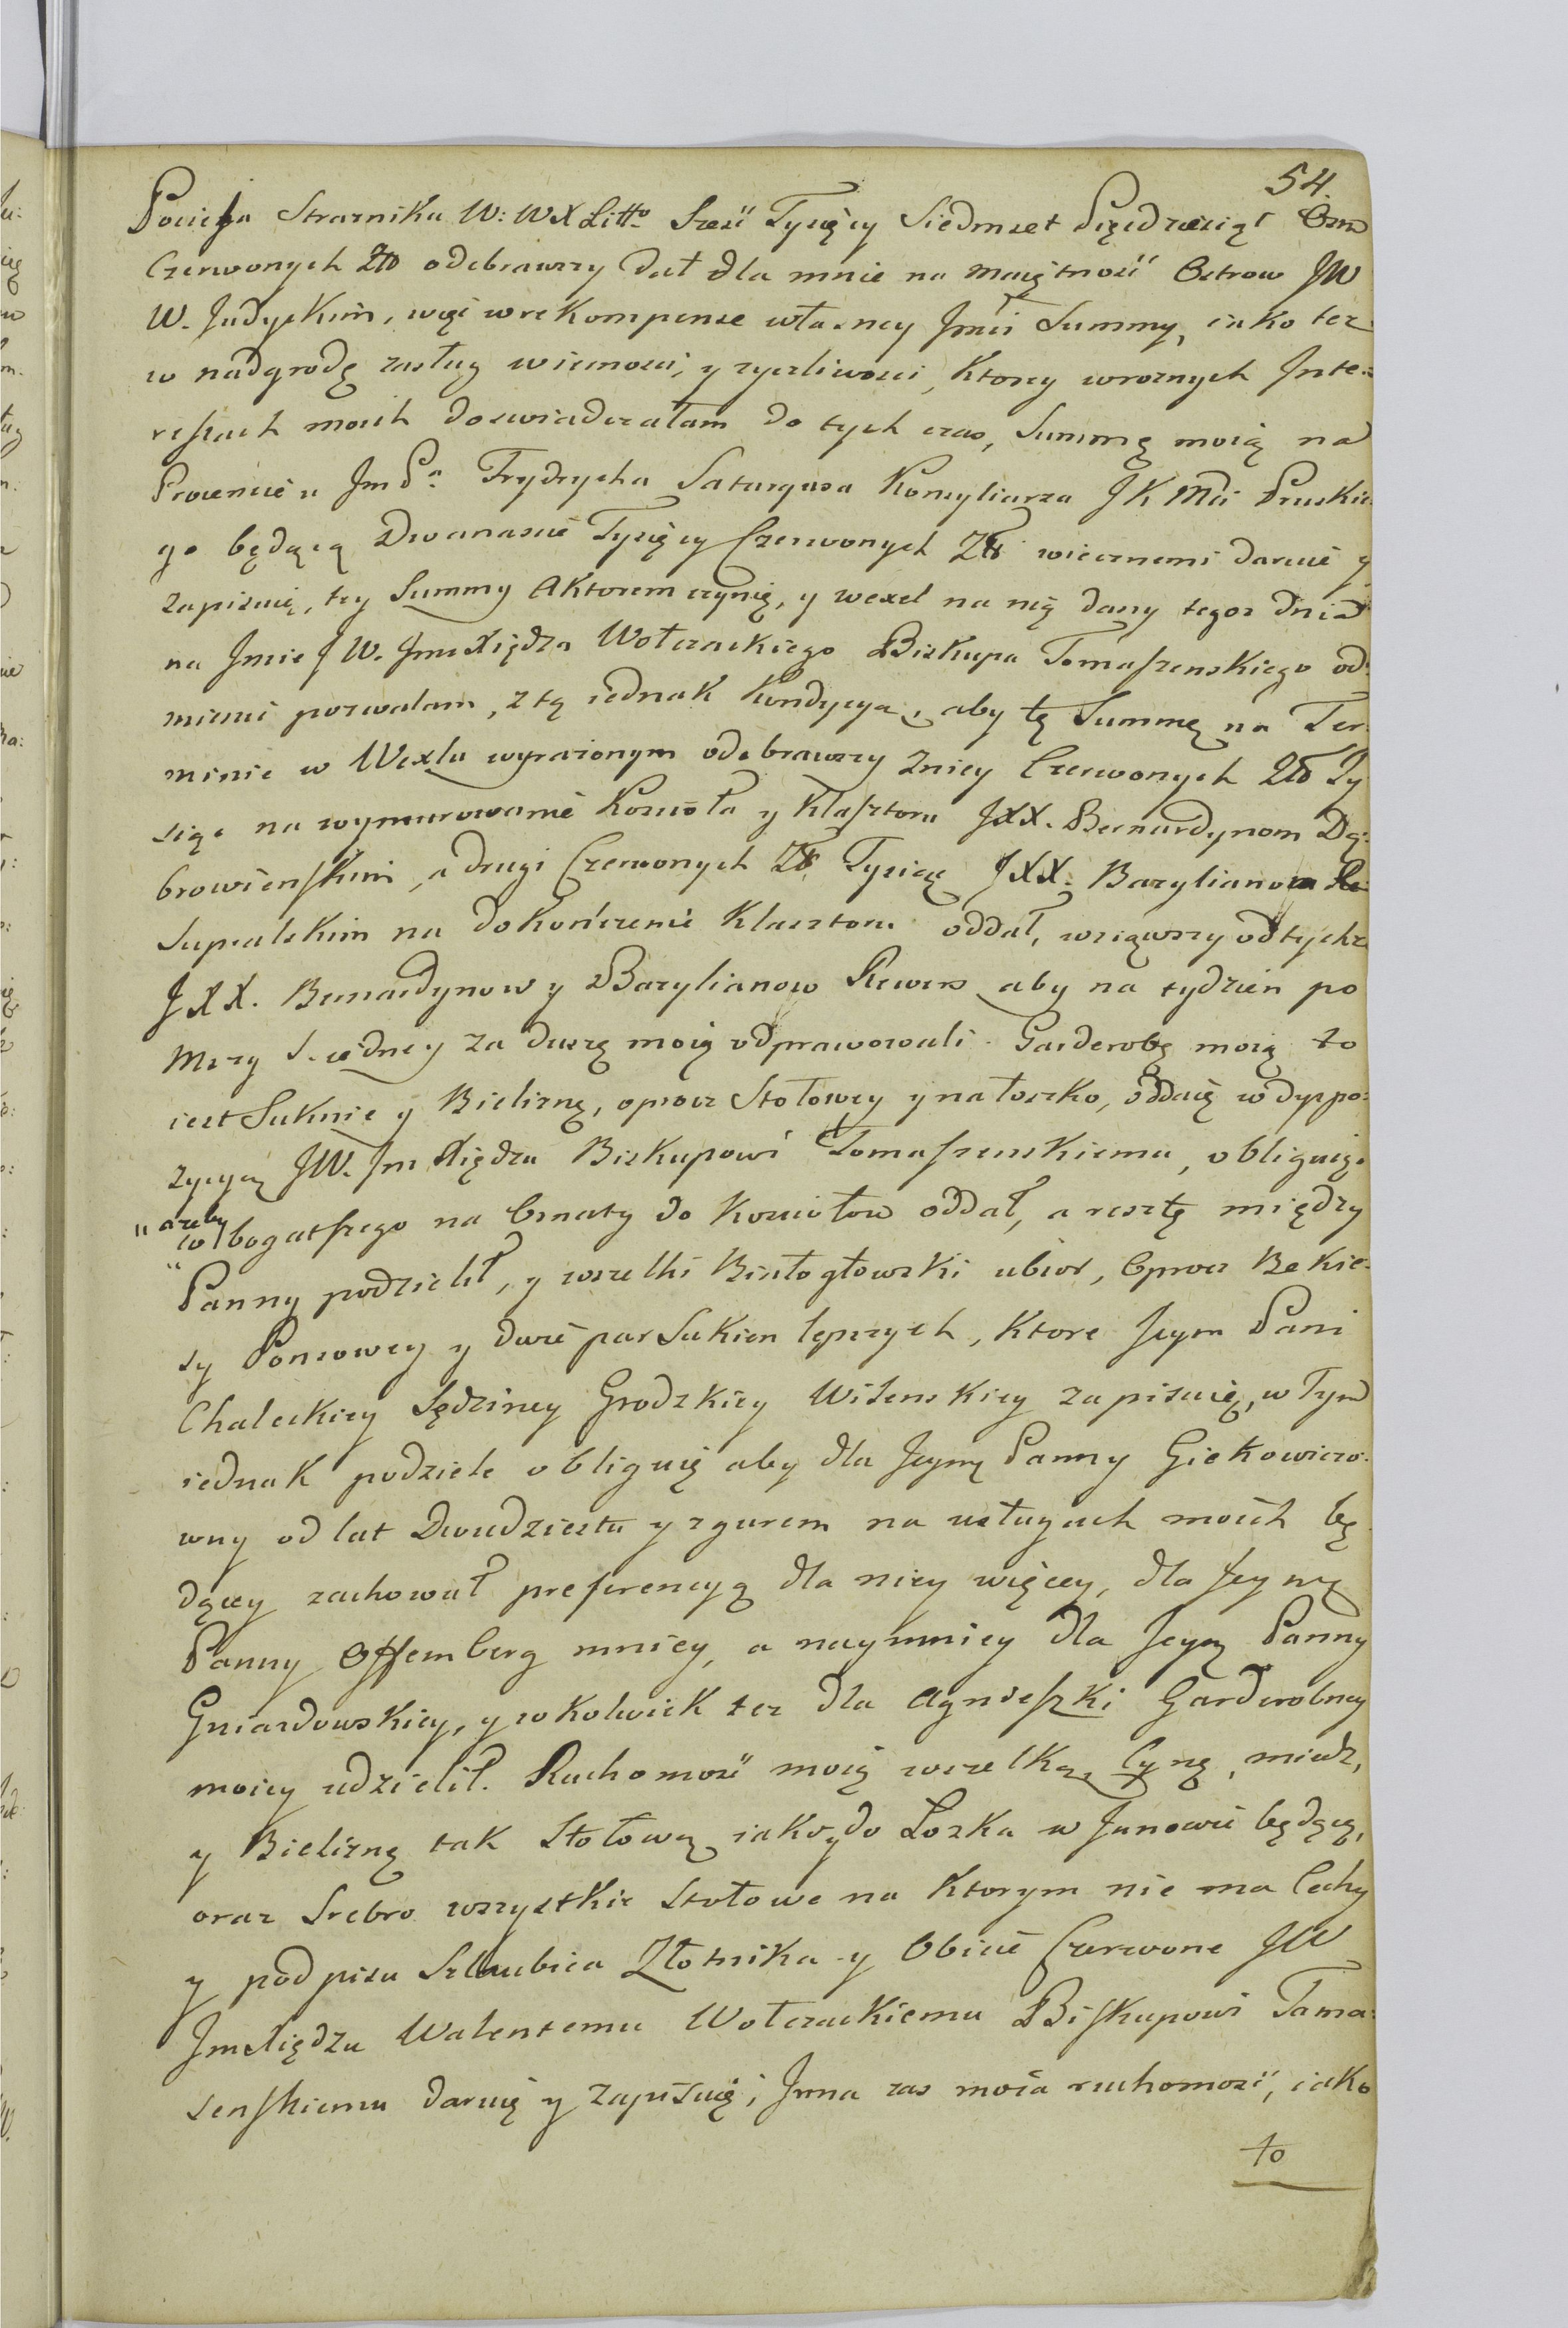 54.
Pocieja Strarnika W: WX Litto Sześć Tysięcy Siedmset Pięcdziesiąt Osm
Czerwonych Zło odebrawszy dał dla mnie na maiętność Ostrow JW
W. Judyckim, więc w rekompense własney Jmci Summy, iako tez
w nadgrodę zasług wiernosci, y zycliwosci, Ktorey w roznych Inte:
ressach moich doswiadczałam do tych czas, Summę moią na
Prowencie u Jm Pa. Frydrycha Saturgusa Konsyliarza JK Mci Pruskie
go będącą Dwanascie Tysięcy Czerwonych Zło wiecznemi daruię y
zapisuię, tey Summy Aktorem czynię, y wexel na nię dany tegoz dnia
na Jmie JW. Jmc Xiędza Wołczackiego Biskupa Tomaszenskiego od:
mienić pozwalam, z tą iednak Kondycyą, aby tę Summę na Ter
minie w Wexlu wyrazonym odebrawszy z niey Czerwonych Zło Ty
siąc na wymurowanie Koscioła y Klasztoru JXX. Bernardynom Dą:
browienskim, a drugi Czerwonych Zło Tysiąc JXX. Bazylianom
Supraslskim na dokończenie Klasztoru oddał, wziąwszy od tychz
JXX. Bernardynow y Bazylianow Rewers aby na tydzień po
Mszy S. iedney za duszę moią odprawowali. Garderobę moią to
iest Suknie y Bieliznę, oprocz Stołowey y na łoszko, oddaię w dyspo:
zycyą JW. Jm Xiędzu Biskupowi Tomaszenskiemu, obliguię
" azeby
" co bogatszego na Ornaty do Kosciołow oddał, a resztę między
Panny podzielił, y wszelki Białogłowski ubior, Oprocz Bekie:
sy Ponsowey y dwie par Sukien lepszych, Ktore Jeym Pani
Chaleckiey Sędziney Grodzkiey Wilenskiey zapisuię, w Tym
iednak podziele obliguię aby dla Jeymę Panny Giekowiczo:
wny od lat Dwudziestu y zgurem na usługach moich bę
dącey zachował preferencyą dla niey więcey, dla Jeymę
Panny Offemberg mniey, a naymniey dla Jeymę Panny
Gniazdowskiey, y cokolwiek tez dla Agnieszki Garderobney
moiey udzielił. Ruchomość moią wszelką, Cynę, miedz,
y Bieliznę tak Stołową iako y do Łoszka w Janowie będącą,
oraz Srebro wszystkie Stołowe na Ktorym nie ma Cechy
y podpisu Szlaubica Złotnika y Obicie Czerwone JW
Jm Xiędzu Walentemu Wołczackiemu Biskupowi Toma:
senskiemu daruię y zapisuię; Inna zas moia ruchomość, iako
to